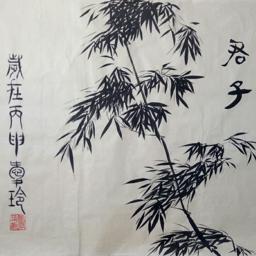 君子
歲在丙申
玲